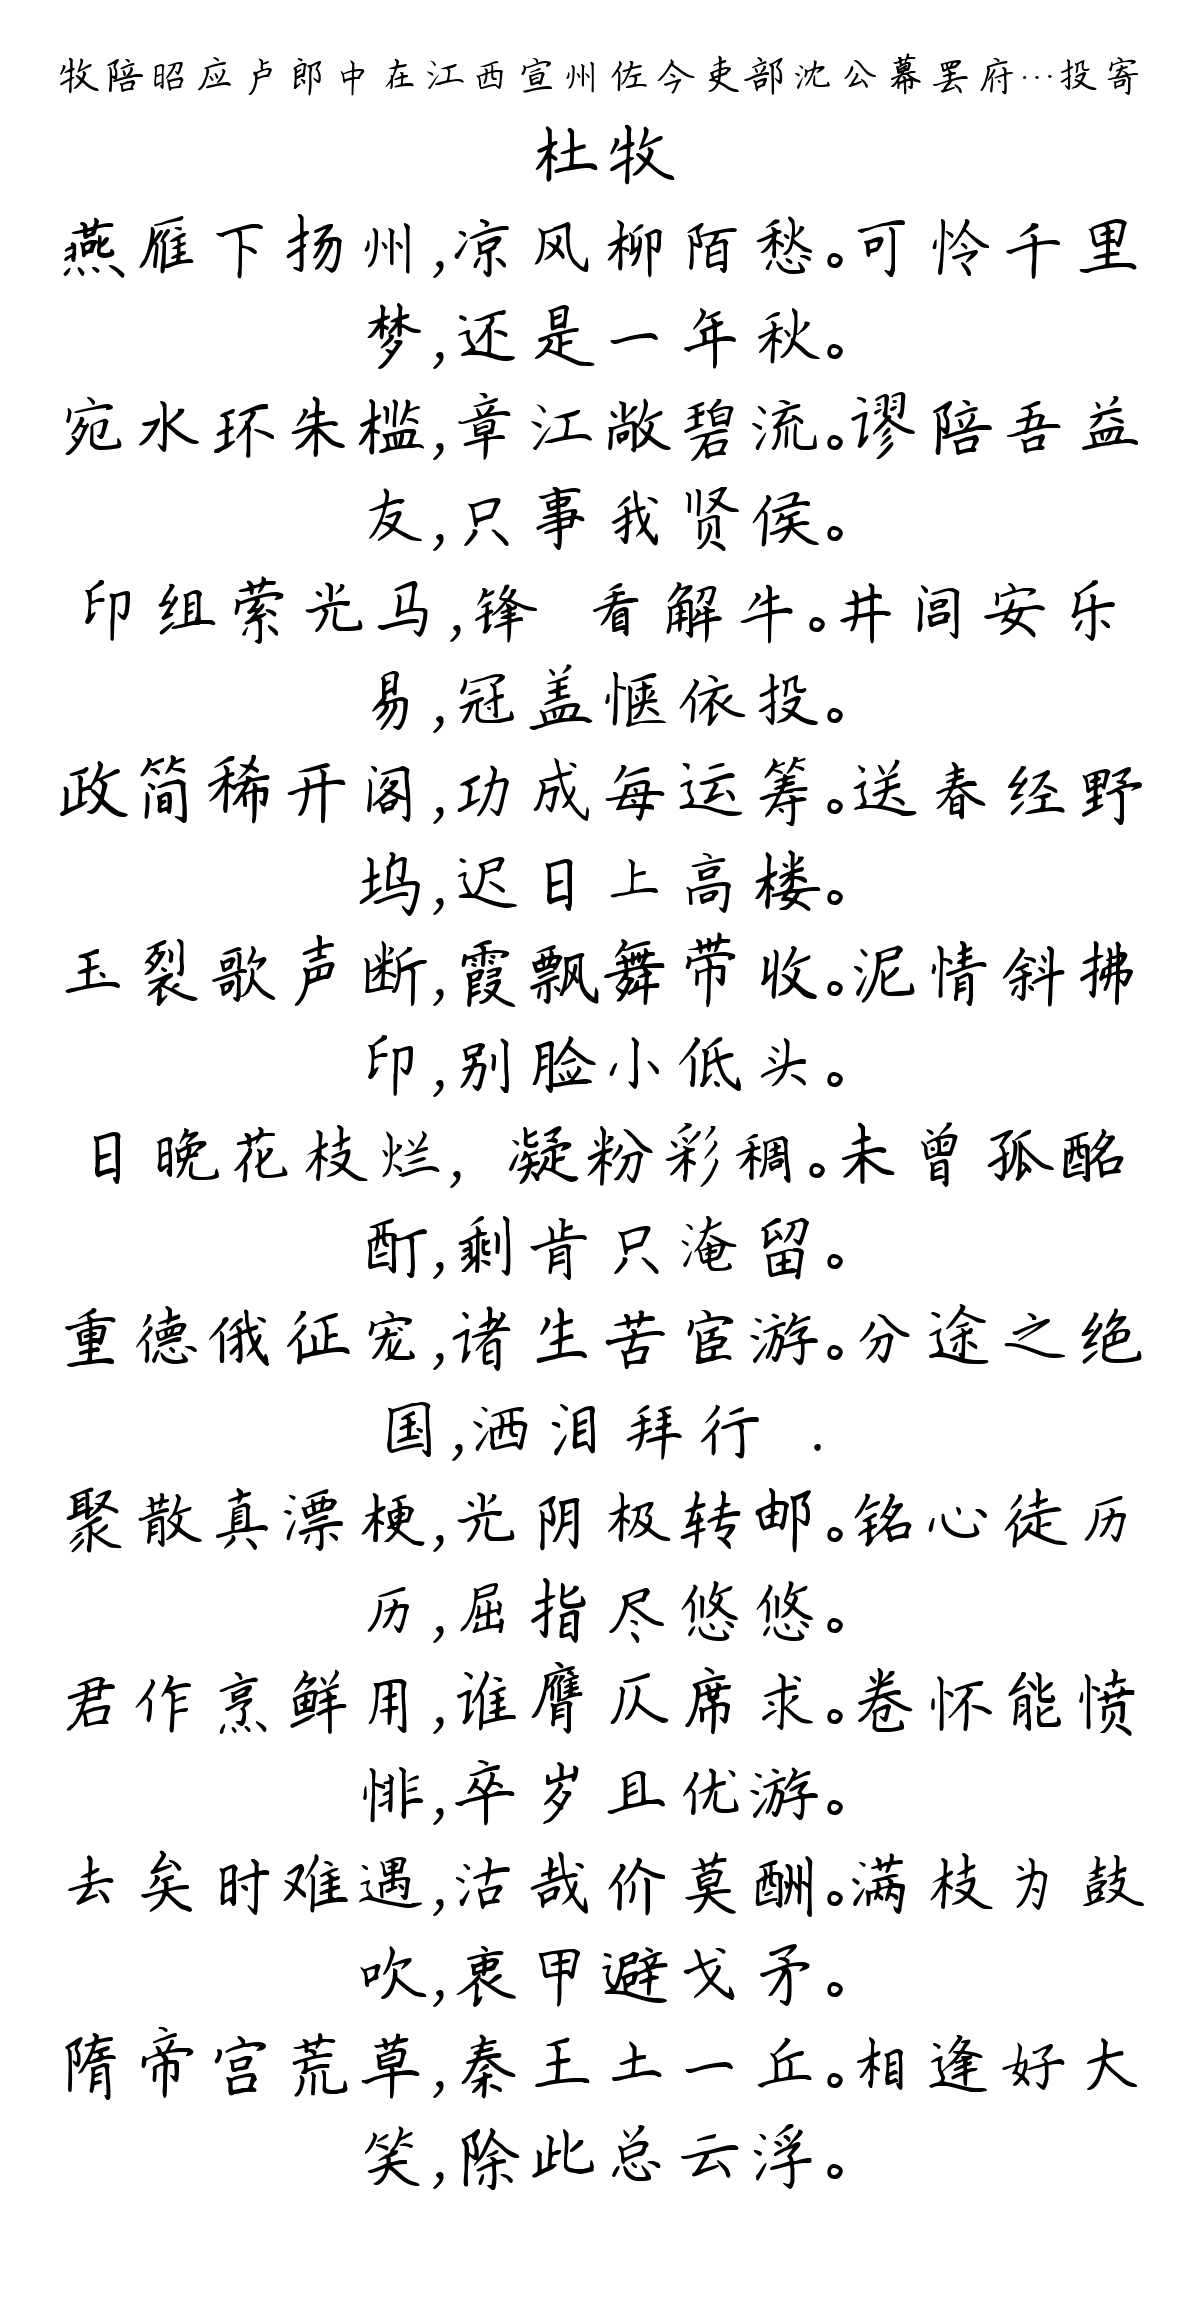 牧陪昭应卢郎中在江西宣州佐今吏部沈公幕罢府…投寄
杜牧
燕雁下扬州,凉风柳陌愁。可怜千里
梦,还是一年秋。
宛水环朱槛,章江敞碧流。谬陪吾益
友,只事我贤侯。
印组萦光马,锋 看解牛。井闾安乐
易,冠盖惬依投。
政简稀开阁,功成每运筹。送春经野
坞,迟日上高楼。
玉裂歌声断,霞飘舞带收。泥情斜拂
印,别脸小低头。
日晚花枝烂, 凝粉彩稠。未曾孤酩
酊,剩肯只淹留。
重德俄征宠,诸生苦宦游。分途之绝
国,洒泪拜行 .
聚散真漂梗,光阴极转邮。铭心徒历
历,屈指尽悠悠。
君作烹鲜用,谁膺仄席求。卷怀能愤
悱,卒岁且优游。
去矣时难遇,沽哉价莫酬。满枝为鼓
吹,衷甲避戈矛。
隋帝宫荒草,秦王土一丘。相逢好大
笑,除此总云浮。